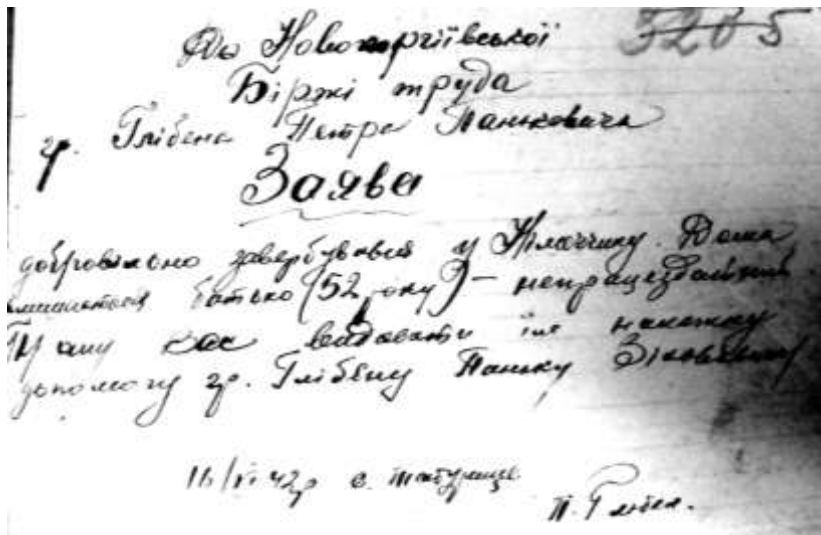 До Новогоргіївської 3205
Біржі труда
гр. Глібена Петра Паньковича
Заява
добровільно завербувався у Німеччину. Дома
залишається батько (52 роки) – непрацездатний
Прошу вас видавати їм належну
допомогу гр. Глібену Паньку
16/VI 42р с.
П. Глібен.